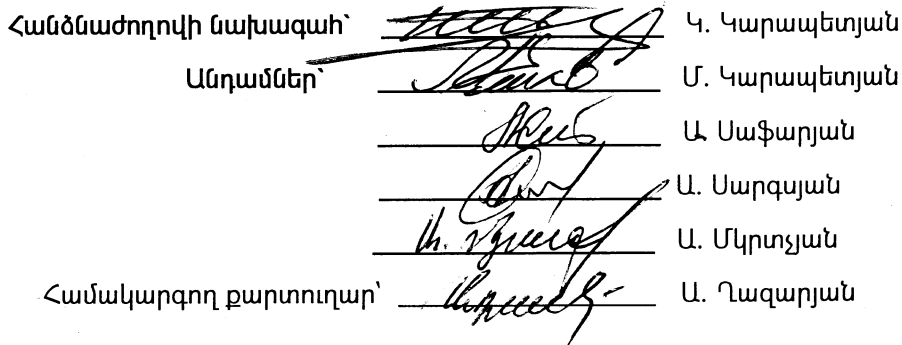 Հանձնաժողովի նախագահ՝ Կ. Կարապետյան
Անդամներ՝ Մ. Կարապետյան
Ա. Սաֆարյան
Ա. Սարգսյան
Ա. Մկրտչյան
Համակարգող քարտուղար՝ Ա. Ղազարյան